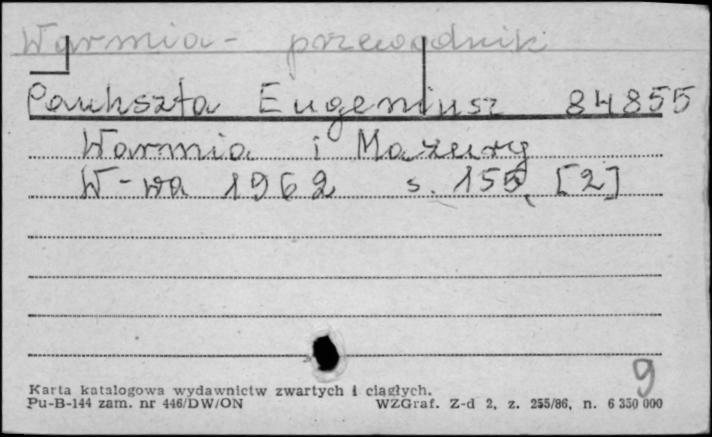 Warmia - przewodnik
Paukszta Eugeniusz 84855
Warmia i Mazury
W-wa 1962 s. 155, [2]
9
Karta katalogowa wydawnictw zwartych i ciągłych.
Pu-B-144 zam. nr 446/DW/ON WZGraf. Z-d 2, z. 255/86, n. 6 350 000